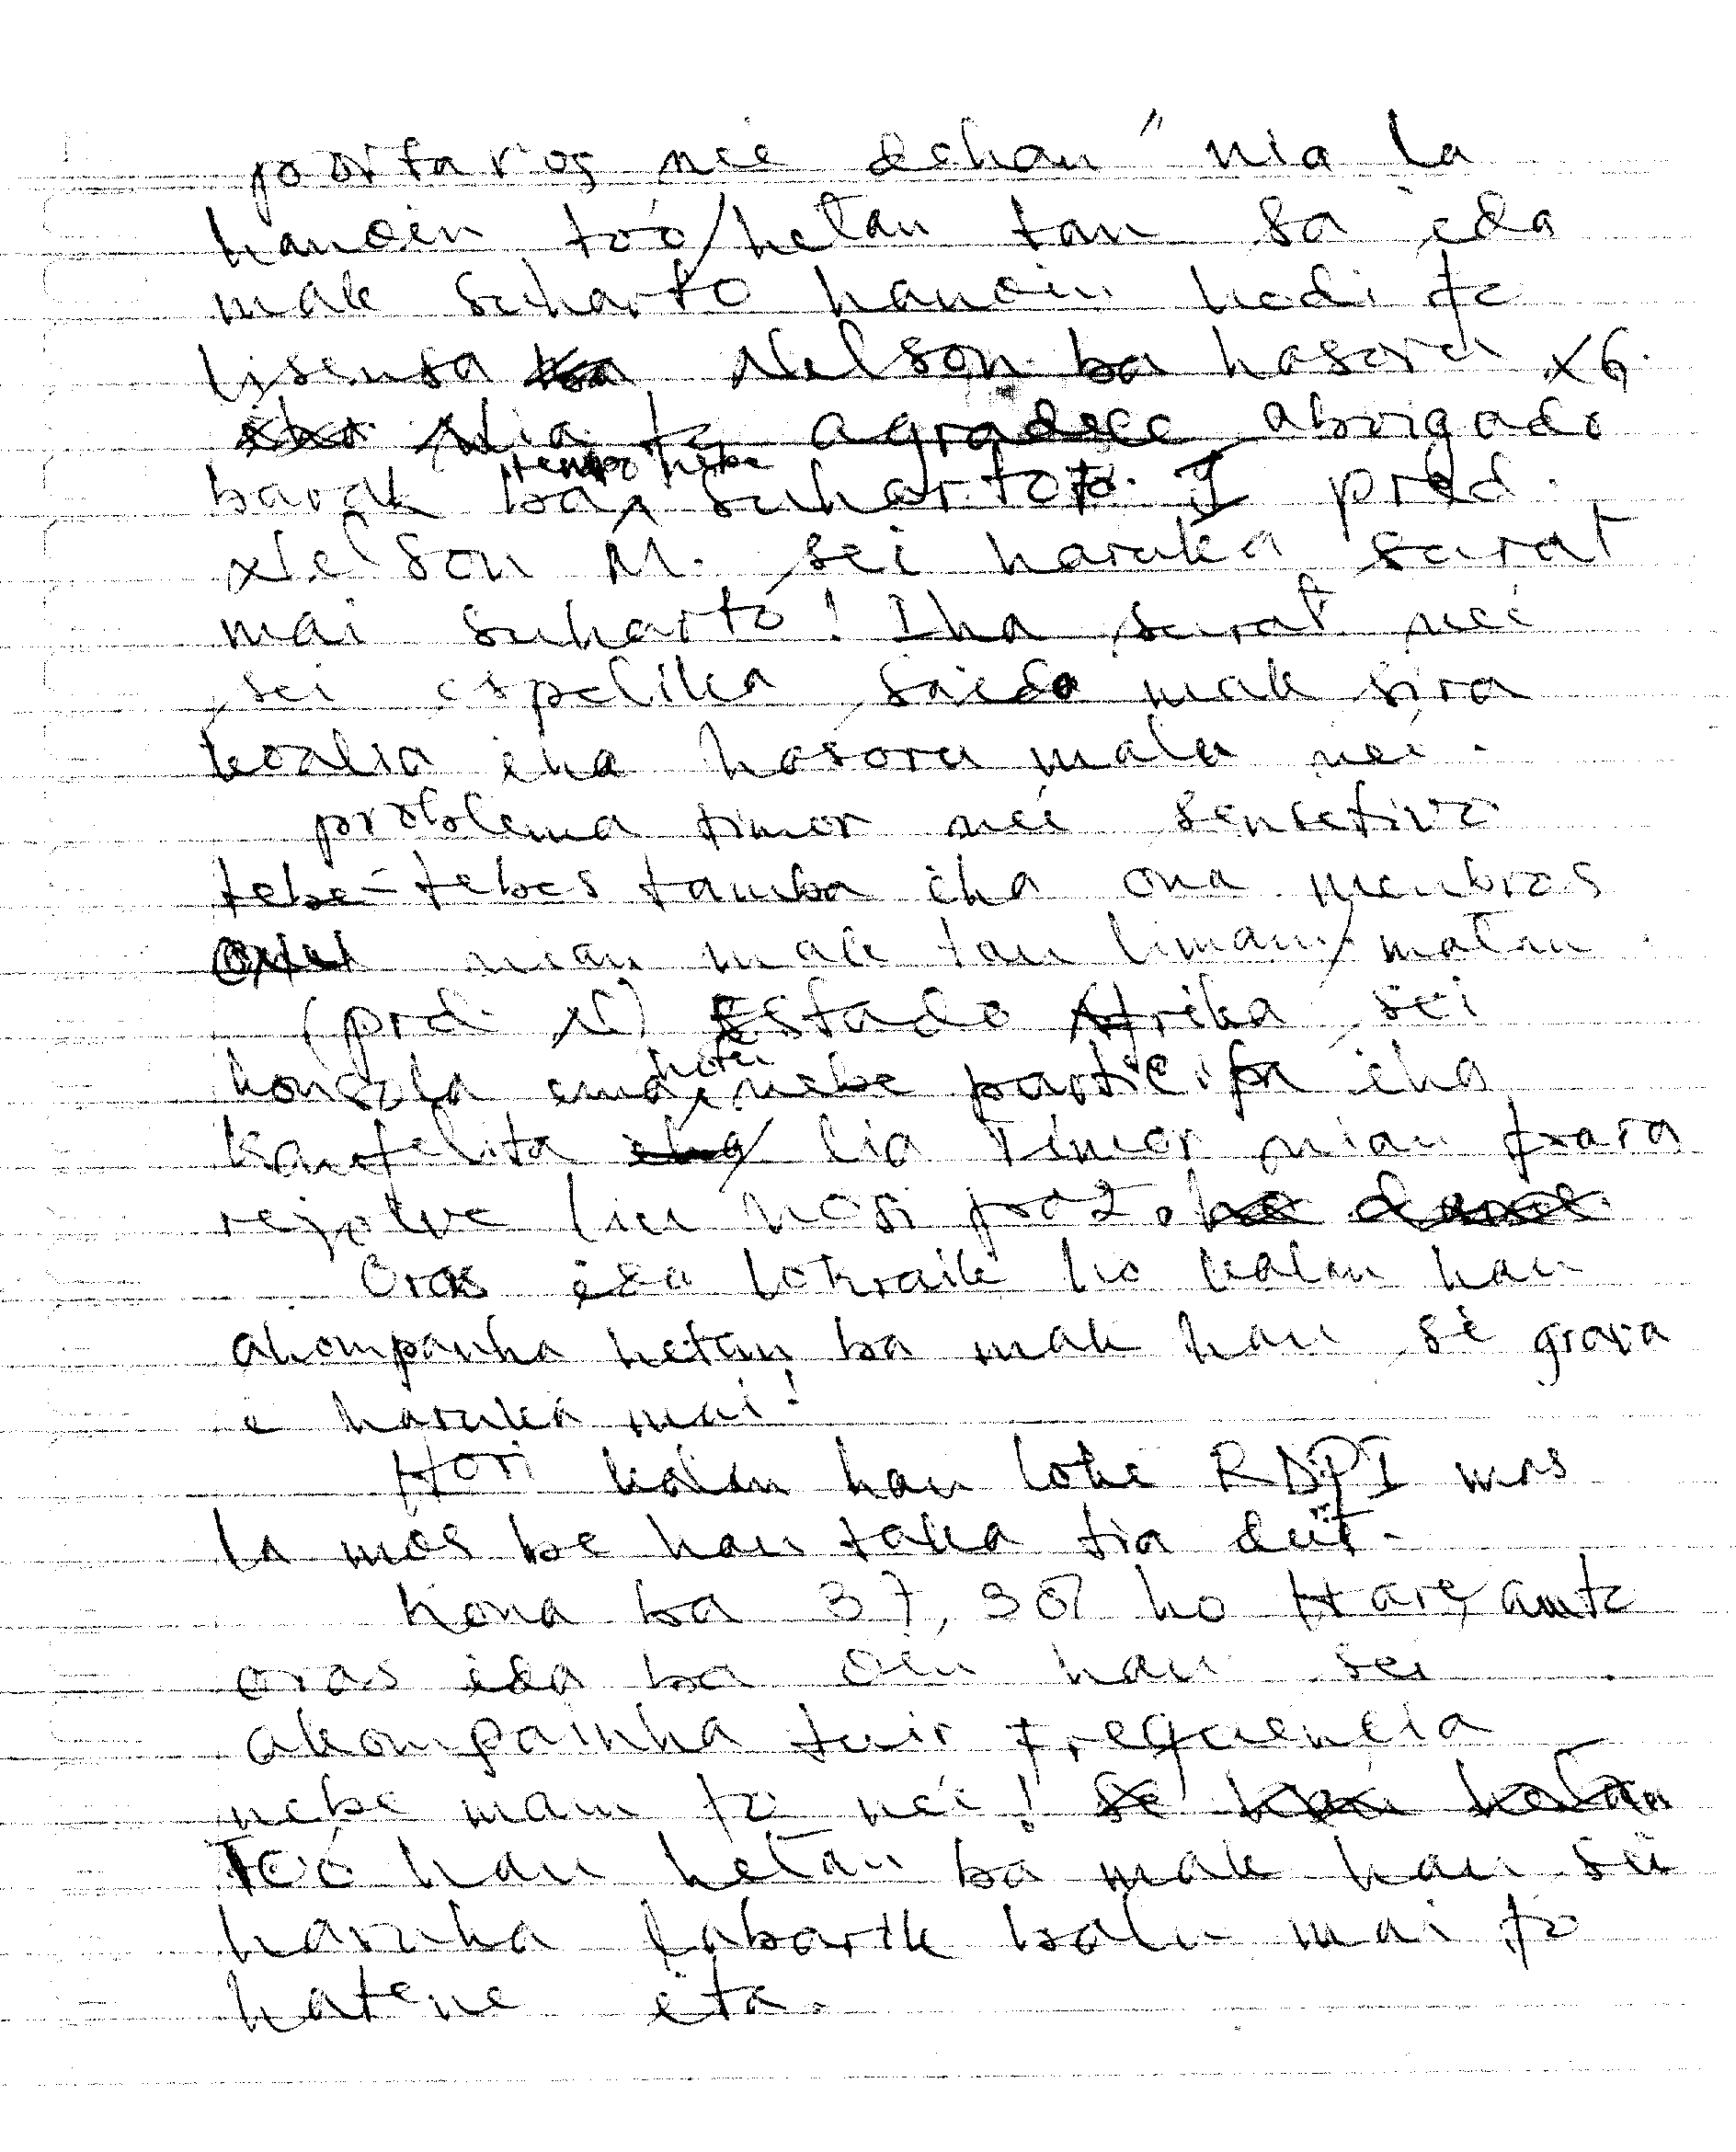 portavos neé dehan "nia la
hanoin toó/hetan tan sa ida
mak Suharto hanoin hodi fo
lisensa Nelson ba hasoru XG.
Nia fo agradece aborigado
barak ba tempo nebe Suharto fo. I pred.
Nelson M. sei haruka surat
mai Suharto! Iha surat neé
sei espelika saida mak sira
koalia iha hasoru malu neé.
problema timor neé sensetivo
tebe-tebes tamba iha ona menbros
nian mak tau liman/matan.
(prd. N) Estado Afrika sei
konsola ema hotu nebe participa iha
konfelita lia Timor nian para
rejolve liu hosi paz.
Oras ida lokraik ho kalan hau
akompanha hetan ba mak hau sé grava
e haruka mai!
Hori kalan hau loke RDPI mos
la mos be hau taka tia deit.
kona ba 37, 38 ho Hare, amto
oras ida ba oin hau sei
akompainha tuir frequencia
nebe mam fo neé!
Toó hau hetan ba mak hau sei
haruka labarik balu mai fo
hatene ita.